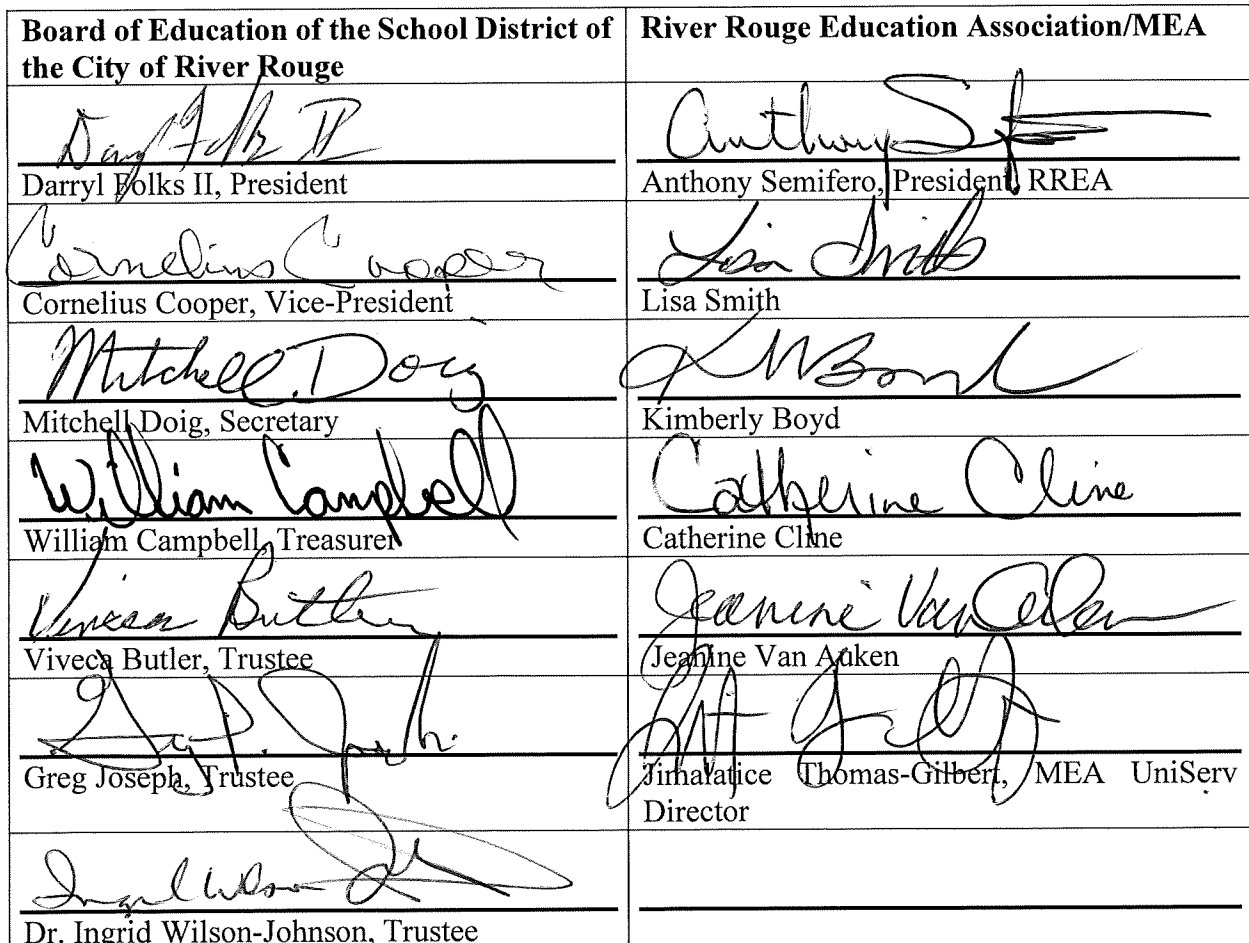 Board of Education of the School District of
the City of River Rouge
River Rouge Education Association/MEA
Darryl Folks II, President
Anthony Semifero, President, RREA
Anthony
Cornelius Cooper
Cornelius Cooper, Vice-President
Lisa Smith
Lisa Smith
Mitchell Doig
Mitchell Doig, Secretary
Kimberly Boyd
William Campbell
William Campbell, Treasurer
Catherine Cline
Catherine Cline
Viveca Butler
Viveca Butler, Trustee
Jeanine Van
Jeanine Van Auken
Greg Joseph, Trustee
Jimalatice Thomas-Gilbert, MEA UniServ
Director
Dr. Ingrid Wilson-Johnson, Trustee